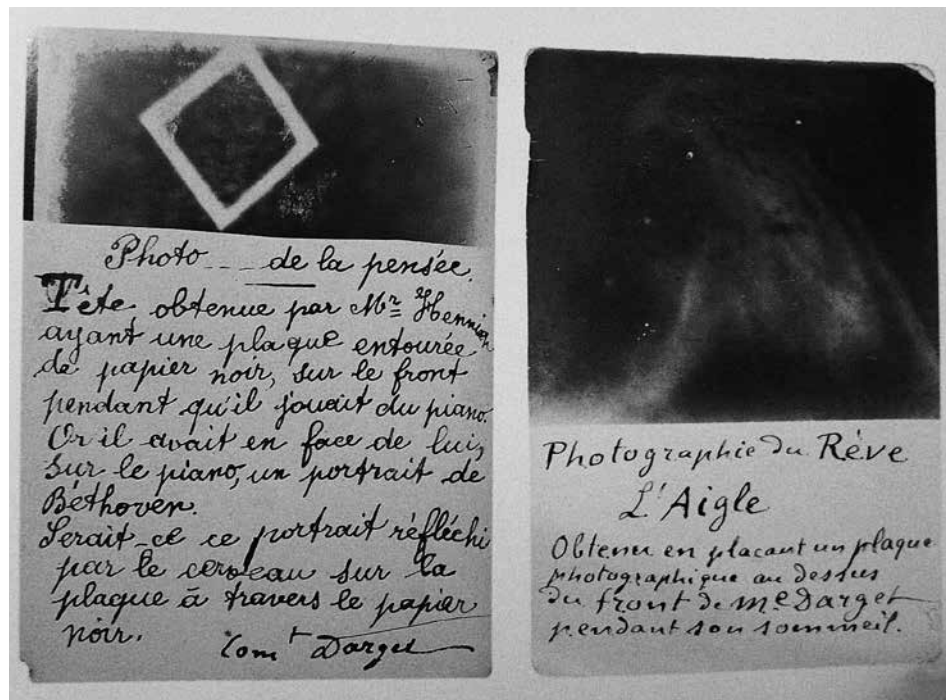 Photo ___ de la pensée.
Tête obtenue par Mr
ayant une plaque entourée
de papier noir, sur le front
pendant qu'il jouait du piano.
Or il avait en face de lui,
sur le piano, un portrait de
Béthoven.
Serait-ce ce portrait réfléchi
par le cerveau sur la
plaque à travers le papier
noir.
Comt Darget
Photographie du Rêve
L'Aigle
Obtenu en placant un plaque
photographique au dessus
du front de Me Darget
pendant son sommeil.